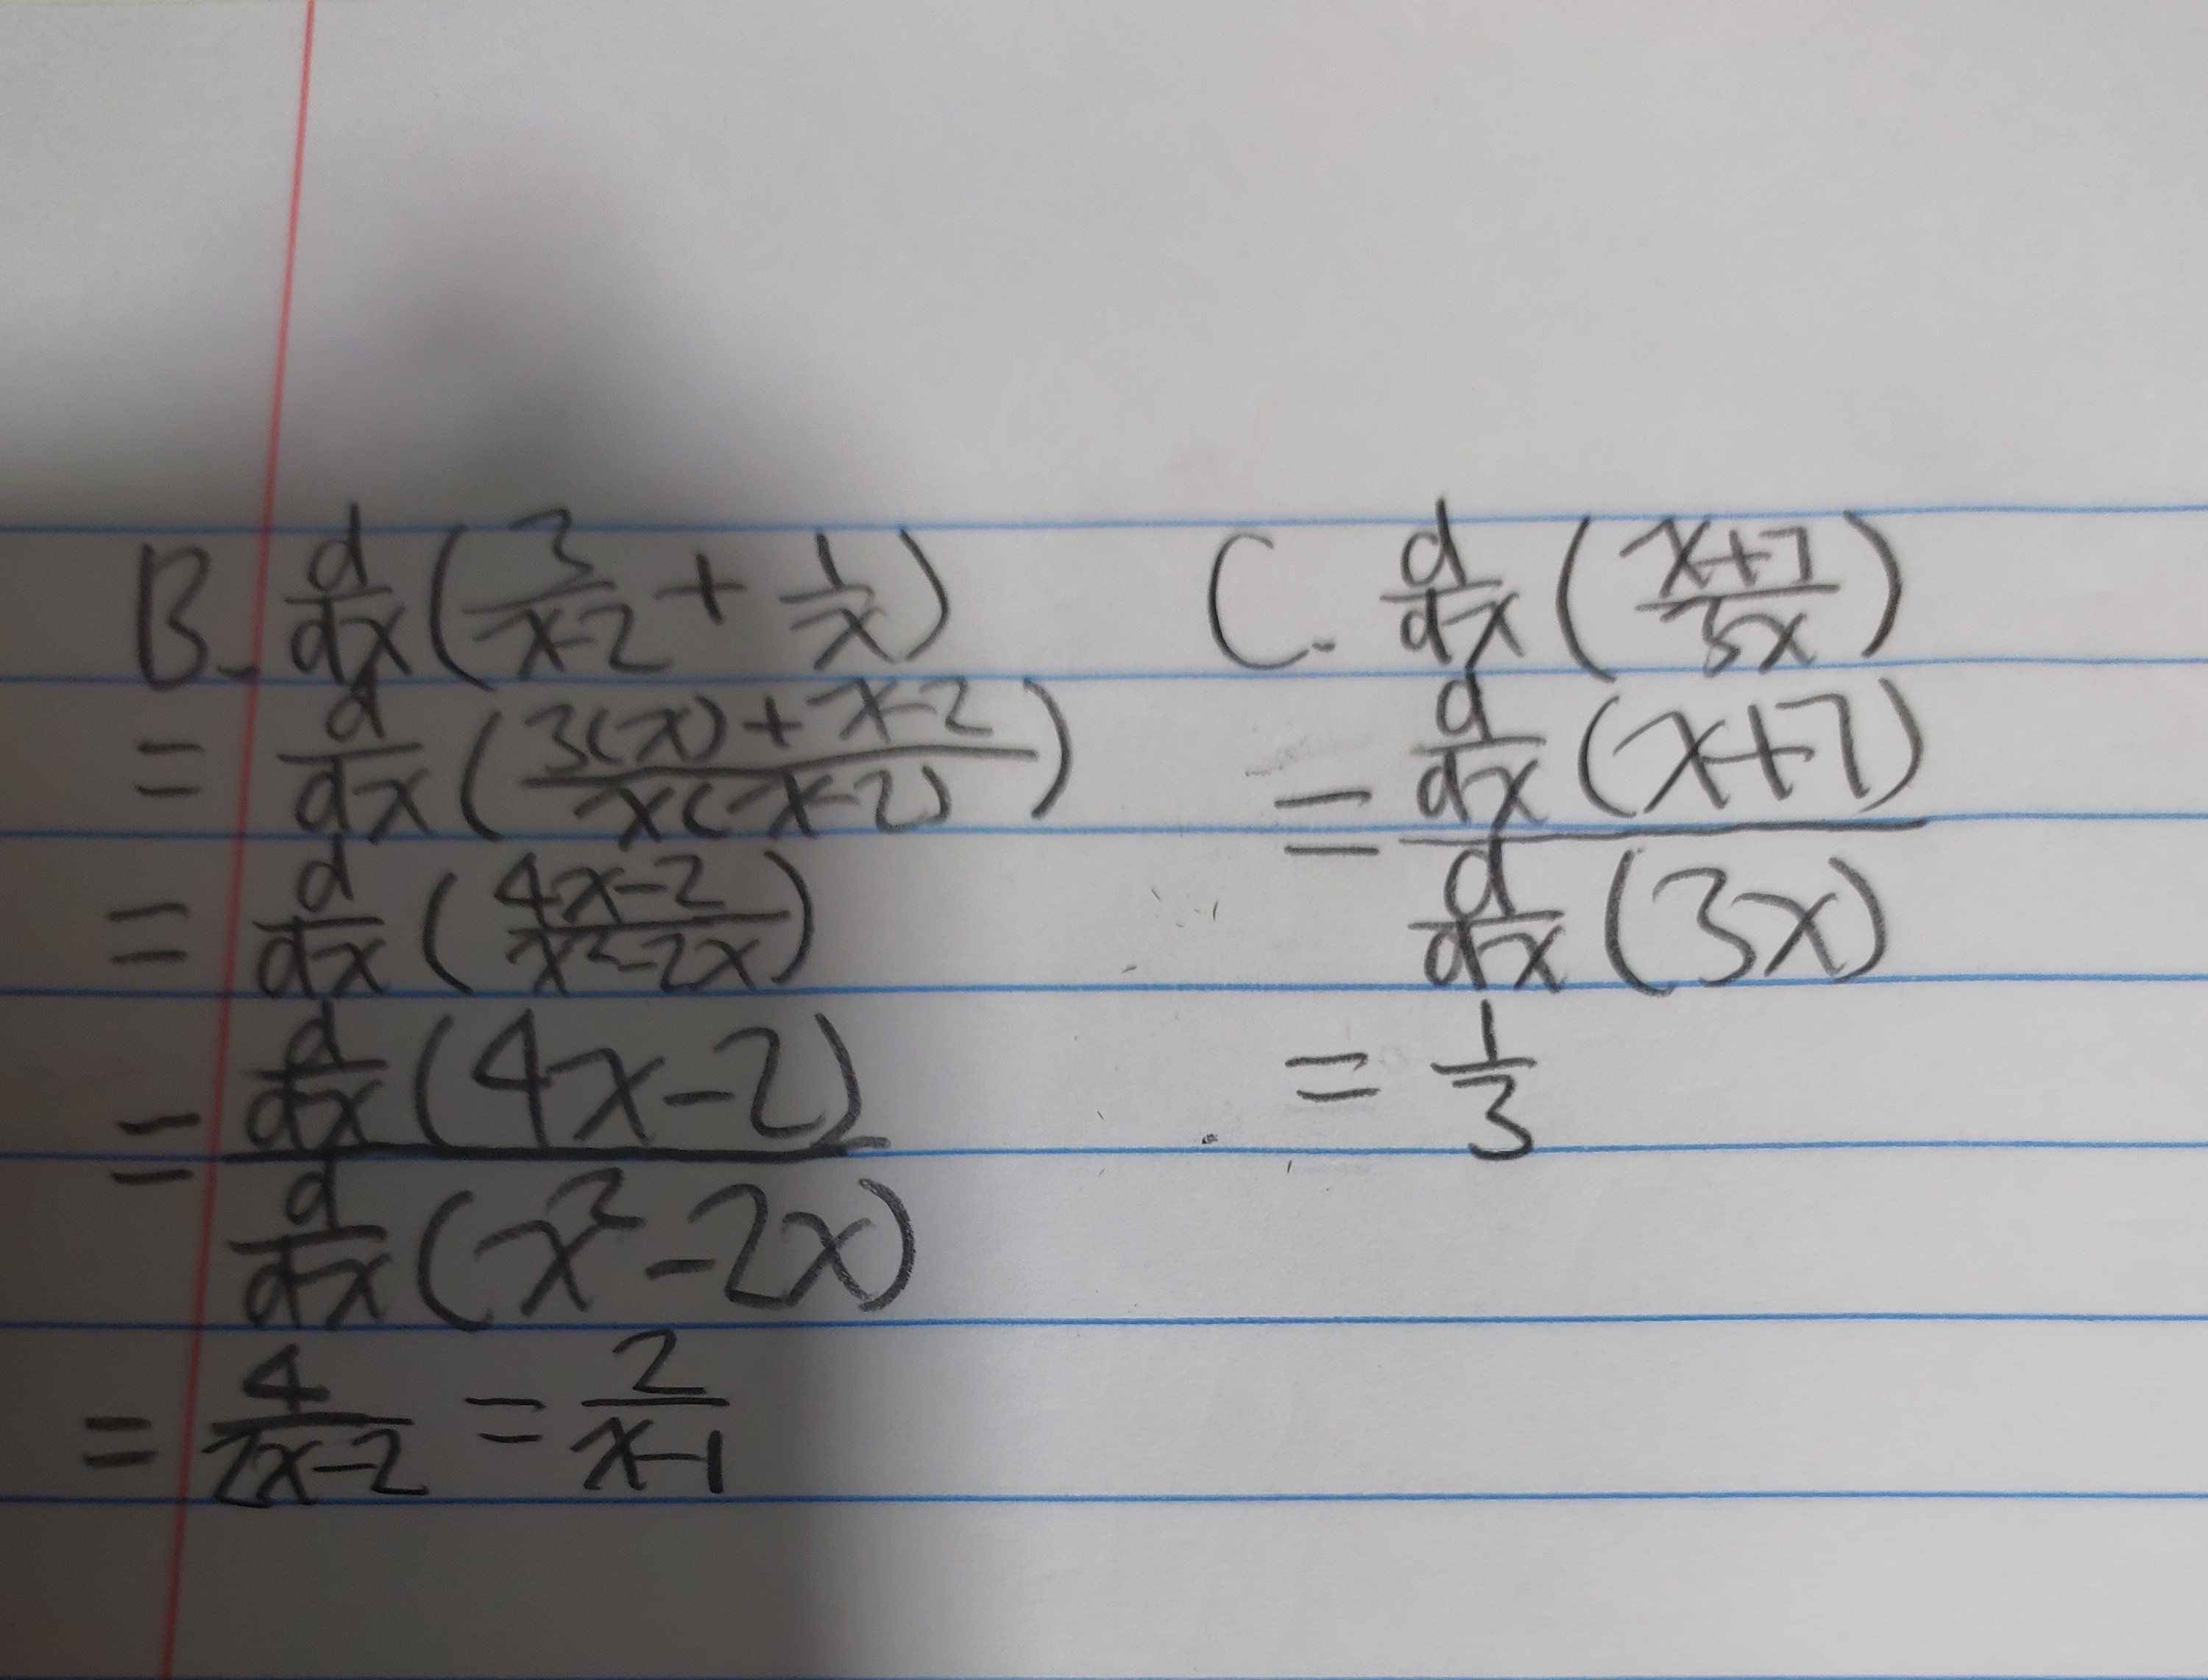 B. d/dx (3/(x-2) + 1/x)
= d/dx ((3(x) + x-2)/(x(x-2)))
= d/dx ((4x-2)/(x²-2x))
= (d/dx (4x-2))/(d/dx (x²-2x))
= 4/(2x-2) = 2/(x-1)
C. d/dx ((x+7)/(3x))
= (d/dx (x+7))/(d/dx (3x))
= 1/3